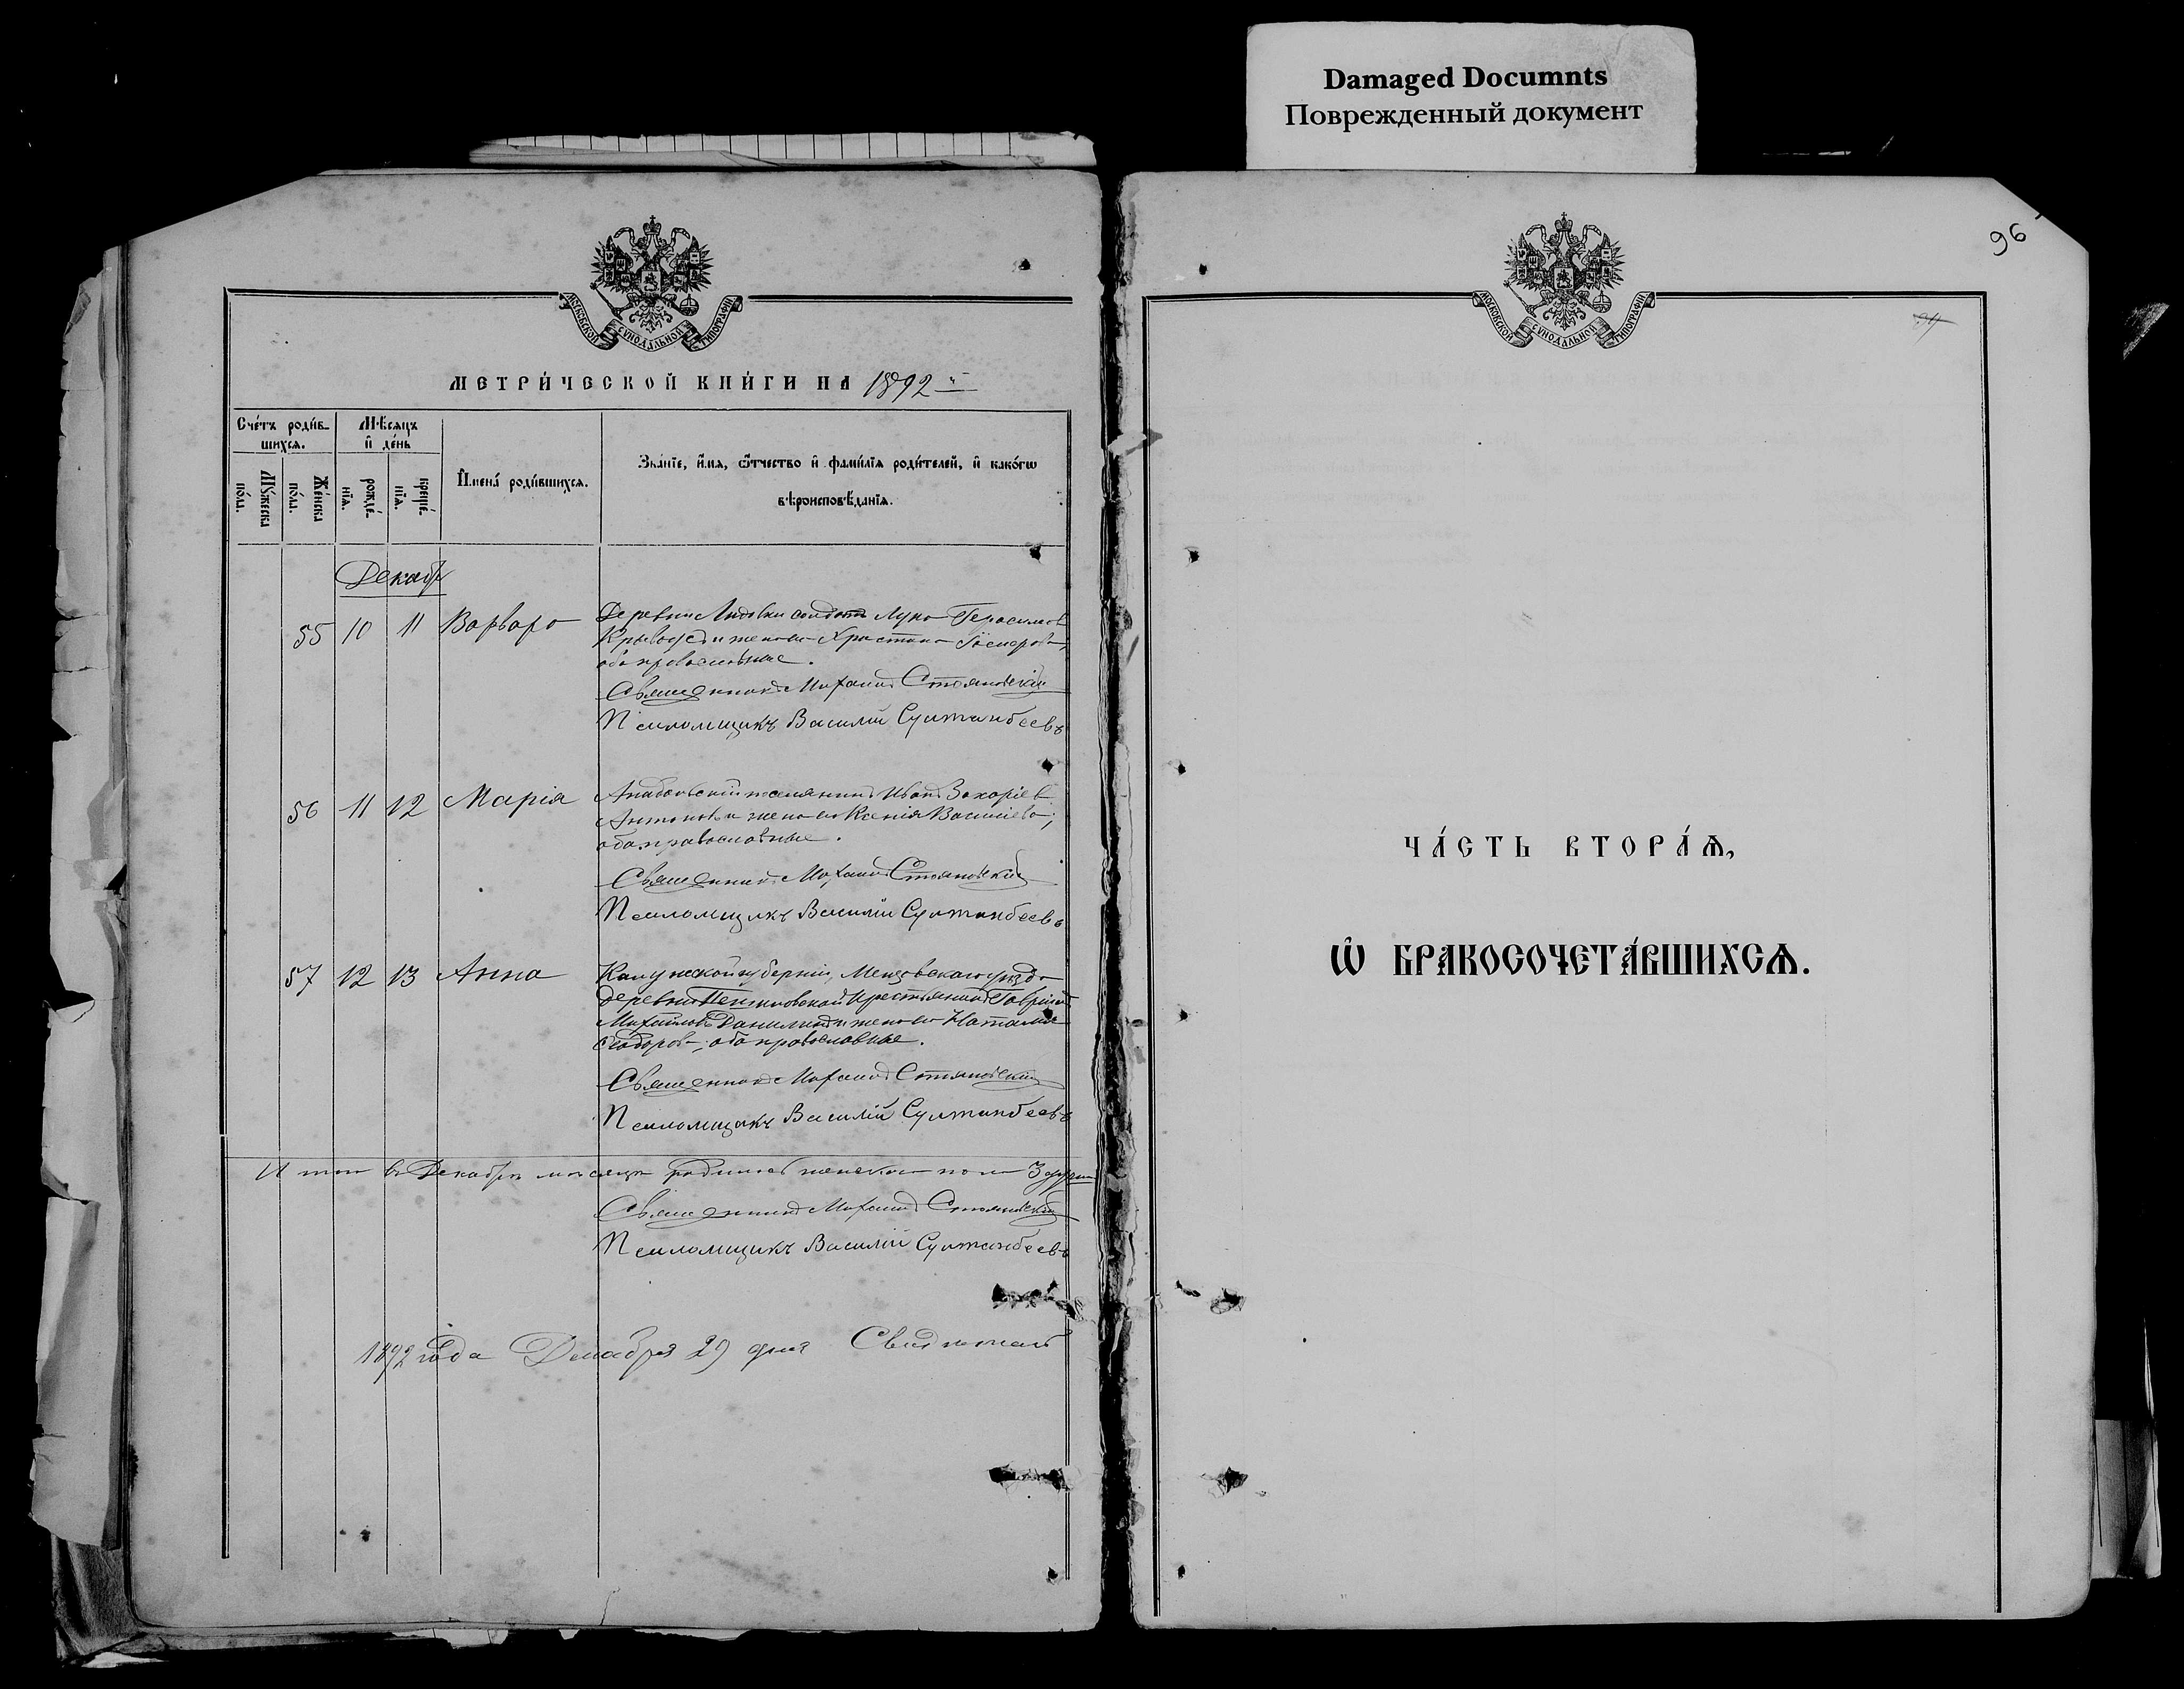 Damaged Documnts
Поврежденный документ
96
МОСКОВСКОЙ СѴНОДАЛЬНОЙ ТИПОГРАФІИ
МОСКОВСКОЙ СѴНОДАЛЬНОЙ ТИПОГРАФІИ
МЕТРИ́ЧЕСКОЙ КНИ́ГИ НА 1892
Сче́тъ роди́в-
шихсѧ.
Мꙋ́жеска
по́ла.
Же́нска
по́ла.
Мѣ́сѧцъ
и҆ де́нь
рожде́-
нїѧ.
креще́-
нїѧ.
И҆мена̀ роди́вшихсѧ.
Зва́нїе, и҆́мѧ, ѻ҆́тчество и҆ фами́лїѧ роди́телей, и҆ како́гѡ
вѣроисповѣ́данїѧ.
Декабр
55 10 11 Варвара
Деревни солдатъ Лука Герасимов
и жена его Христина
оба православные.
Священникъ Михаилъ Стояновскій
Псаломщикъ Василій Султанбеевъ
56 11 12 Марія
поселянинъ Иванъ Захаріев
Антоновъ и жена его Ксенія Василіева;
оба православные.
Священникъ Михаилъ Стояновскій
Псаломщикъ Василій Султанбеевъ
57 12 13 Анна
Калужской губерніи, Мещовскаго уѣзда
деревни крестьянинъ Гавріилъ
Михайловъ Данилинъ и жена его Наталія
Ѳеодорова; оба православные.
Священникъ Михаилъ Стояновскій
Псаломщикъ Василій Султанбеевъ
Итого въ Декабрѣ мѣсяцѣ родилось женска пола 3 души
Священникъ Михаилъ Стояновскій
Псаломщикъ Василій Султанбеевъ
1892 года Декабря 29 дня Свидѣтель
ЧА́СТЬ ВТОРА́Ѧ,
Ѡ҆ БРАКОСОЧЕТА́ВШИХСѦ.